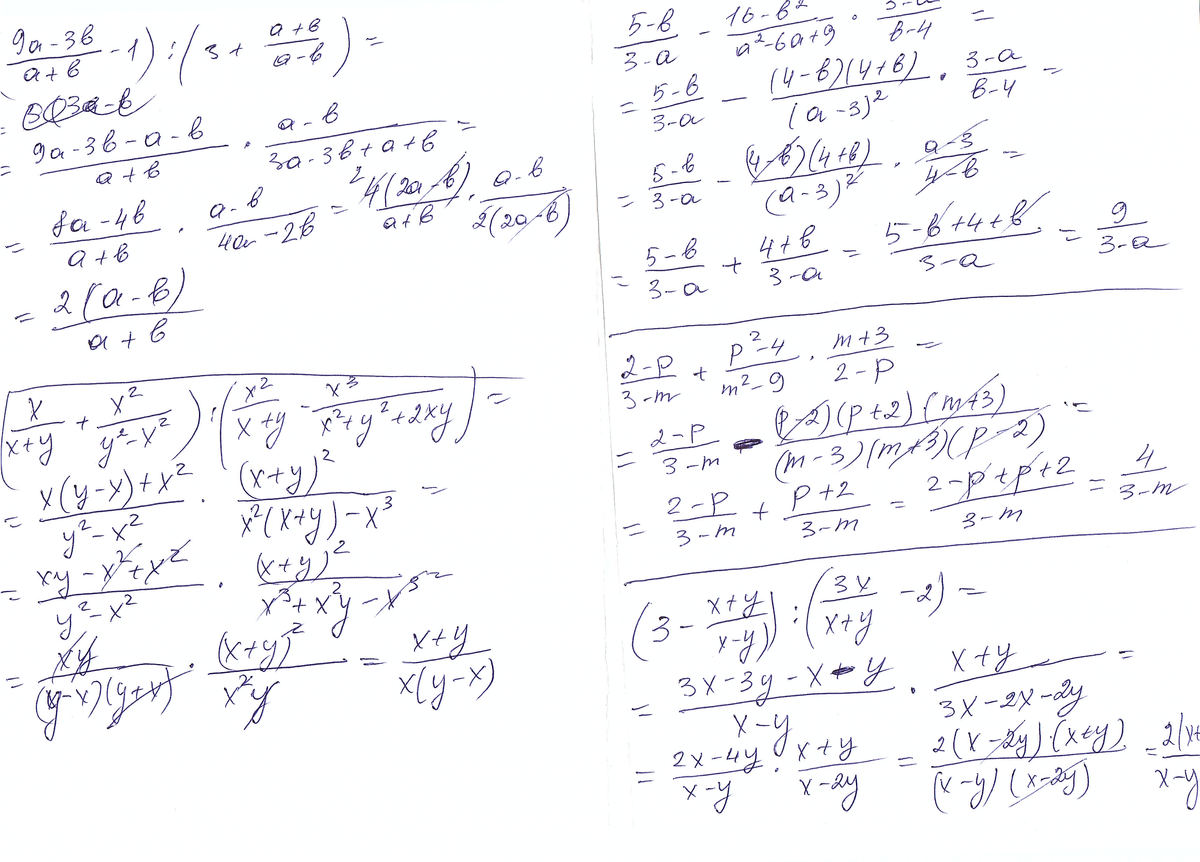 (9a-3в)/(a+в) - 1) : (3 + (a+в)/(a-в)) =
= (9a-3в-a-в)/(a+в) · (a-в)/(3a-3в+a+в) =
= (8a-4в)/(a+в) · (a-в)/(4a-2в) = ²4(2a-в)/(a+в) · (a-в)/(2(2a-в))
= 2(a-в)/(a+в)
(x/(x+y) + x²/(y²-x²)) : (x²/(x+y) - x³/(x²+y²+2xy)) =
= (x(y-x)+x²)/(y²-x²) · (x+y)²/(x²(x+y)-x³) =
= (xy-x²+x²)/(y²-x²) · (x+y)²/(x³+x²y-x³) =
= xy/((y-x)(y+x)) · (x+y)²/(x²y) = (x+y)/(x(y-x))
(5-в)/(3-a) - (16-в²)/(a²-6a+9) · (3-a)/(в-4) =
= (5-в)/(3-a) - (4-в)(4+в)/(a-3)² · (3-a)/(в-4) =
= (5-в)/(3-a) - (4-в)(4+в)/(a-3)² · (a-3)/(4-в) =
= (5-в)/(3-a) + (4+в)/(3-a) = (5-в+4+в)/(3-a) = 9/(3-a)
(2-p)/(3-m) + (p²-4)/(m²-9) · (m+3)/(2-p) =
= (2-p)/(3-m) - (p-2)(p+2)(m+3)/((m-3)(m+3)(p-2)) · =
= (2-p)/(3-m) + (p+2)/(3-m) = (2-p+p+2)/(3-m) = 4/(3-m)
(3 - (x+y)/(x-y)) : (3x/(x+y) - 2) =
= (3x-3y-x-y)/(x-y) · (x+y)/(3x-2x-2y) =
= (2x-4y)/(x-y) · (x+y)/(x-2y) = 2(x-2y)·(x+y)/((x-y)(x-2y)) = 2(x+/(x-y